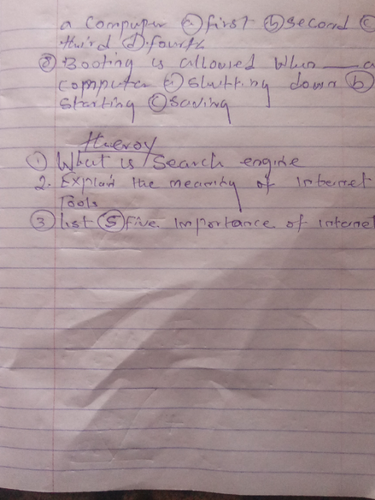 a computer (a) first (b) second (c
third (d) fourth
(8) Booting is allowed when ___ a
computer (a) Shutting down (b)
Starting (c) Saving
theroy
(1) What is Search engine
2. Explain the meaning of internet
tools
(3) list (5) five importance of internet